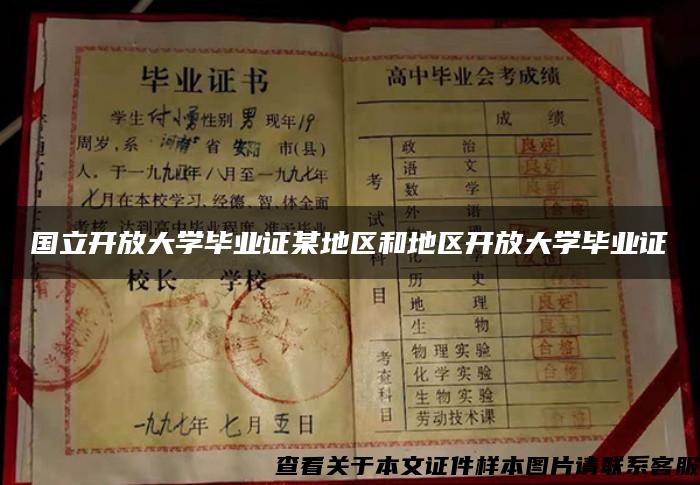 毕业证书
学生付小勇性别男现年19
周岁，系河南省安阳市（县）
人。于一九九四年八月至一九九七年
七月在本校学习，经德、智、体全面
国立开放大学毕业证某地区和地区开放大学毕业证
校长 学校
一九九七年七月五日
高中毕业会考成绩
成绩
考试科目
政治 良好
语文 良好
数学
外语 合格
历史
地理 良好
生物
考查科目
物理实验 合格
化学实验 合格
生物实验
劳动技术课 合格
查看关于本文证件样本图片请联系客服